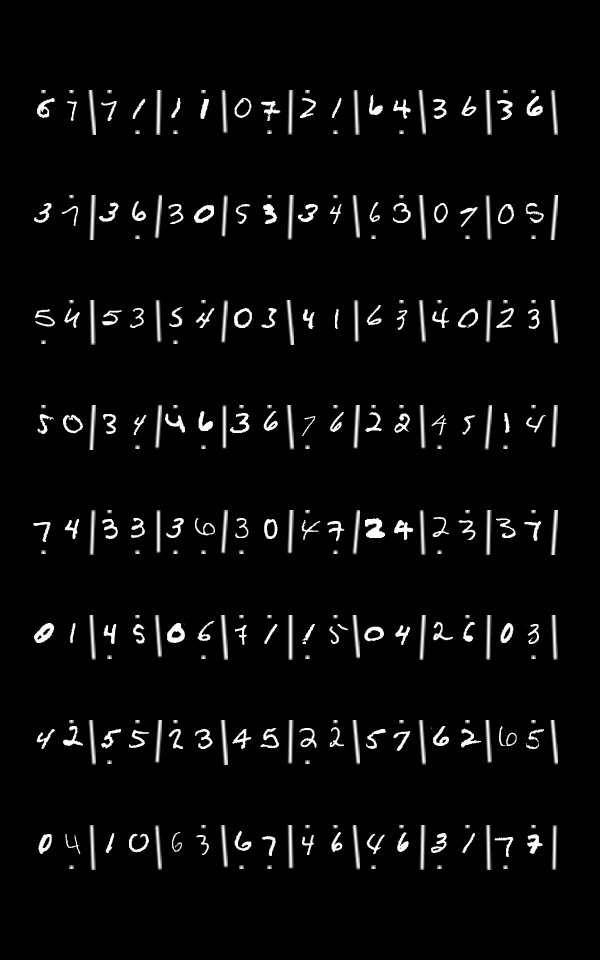 6̇ 7̇ | 7̇ 1̣ | 1̣ 1̇ | 0 7̣ | 2̇ 1̣ | 6 4̣ | 3 6 | 3̇ 6̇ |
3 7̇ | 3̇ 6̣ | 3 0 | 5 3 | 3 4̇ | 6̣ 3̇ | 0 7̣ | 0 5̣ |
5̣ 4 | 5 3 | 5̣ 4̇ | 0 3 | 4 1 | 6 3̇ | 4̇ 0 | 2̇ 3̇ |
5̇ 0 | 3 4̣ | 4̇ 6̣ | 3̇ 6̇ | 7̣ 6̇ | 2̇ 2̇ | 4̣ 5 | 1̣ 4̇ |
7̣ 4 | 3̇ 3 | 3̣ 6̣ | 3̣ 0 | 4̇ 7̣ | 2 4 | 2̣ 3̇ | 3 7̇ |
0 1 | 4̣ 5̇ | 0 6̣ | 7̇ 1̇ | 1̣ 5̇ | 0 4 | 2 6̇ | 0 3̣ |
4 2̇ | 5̣ 5 | 2̇ 3 | 4 5 | 2̣ 2̇ | 5 7̇ | 6̇ 2̇ | 6 5̇ |
0 4̣ | 1 0 | 6 3̇ | 6̣ 7̣ | 4 6̇ | 4̣ 6̇ | 3̣ 1̇ | 7̣ 7̇ |